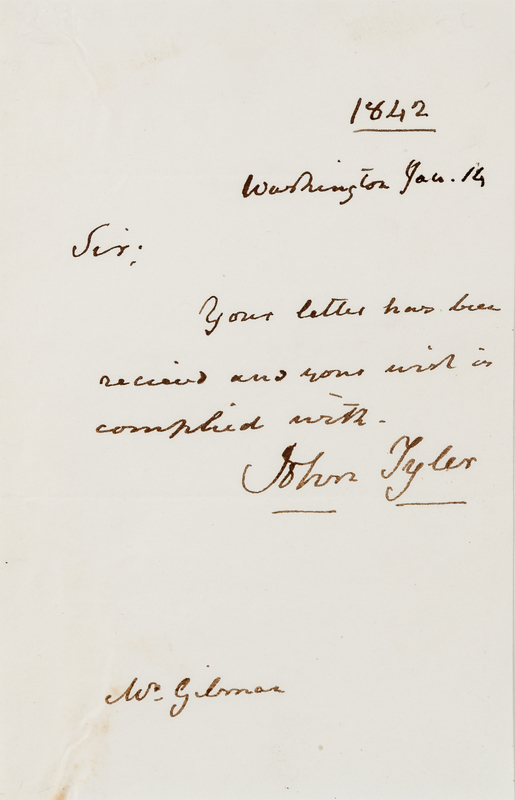 1842
Washington Jan. 14
Sir;
Your letter has been
recieved and your wish is
complied with.
John Tyler
Mr. Gilman